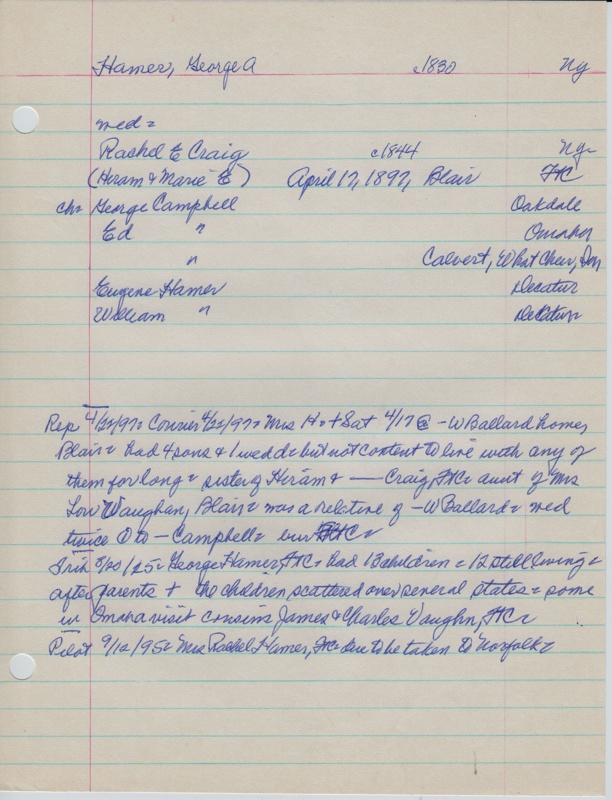 Hamer, George A c1830 Ny
med=
Rachel E Craig c1844 Ny-
(Hiram & Marie E) April 17, 1897, Blair FtC
ch= George Campbell Oakdale
Ed " Omaha
" Calvert, What Cheer, Ia
Eugene Hamer Decatur
William " Decatur
Rep 4/22/97= Courier 4/22/97= Mrs H. + Sat 4/17 @ -W Ballard home,
Blair= had 4 sons & 1 wed d= but not content to live with any of
them for long= sister of Hiram & — Craig, FtC= aunt of Mrs
Lou Vaughan, Blair= was a relative of -W Ballard= med
twice to — Campbell= bur FtC=
Trib 3/20/25= George Hamer, FtC= had 13 children= 12 still living=
after parents + the children scattered over several states= some
in Omaha visit cousins James & Charles Vaughn, FtC=
Pilot 9/12/95= Mrs Rachel Hamer, FtC= due to be taken to Norfolk=